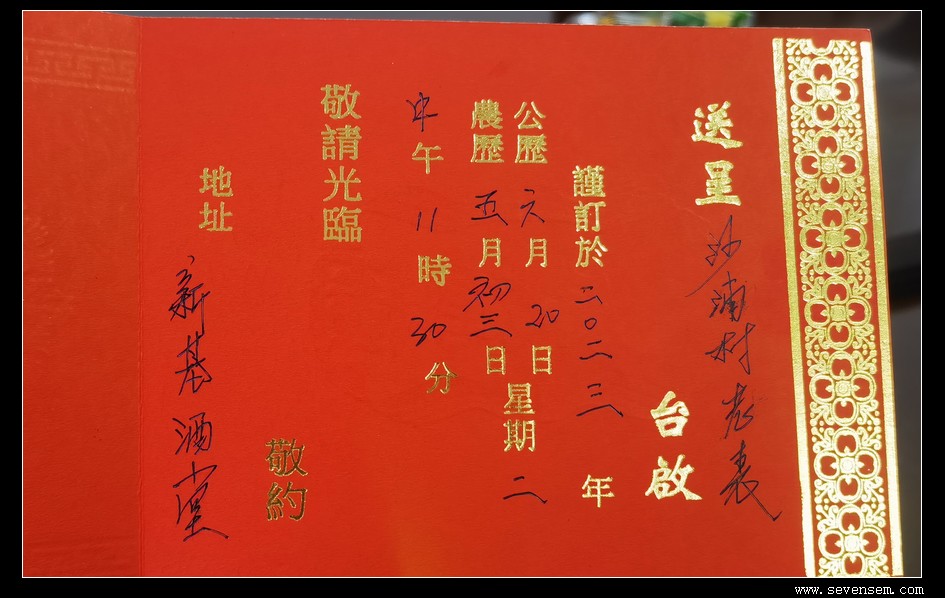 送呈 沙浦村老表 台啟
謹訂於二〇二三年
公歷六月20日
農歷五月初三日
星期二
中午11時30分
敬請光臨
敬約
地址 新基酒堂
www.sevensem.com